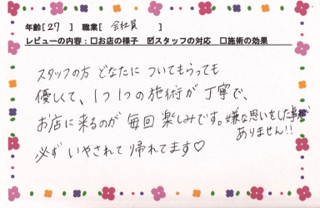 年齢[ 27 ] 職業[ 会社員 ]
レビューの内容：☐お店の様子 ☑スタッフの対応 ☐施術の効果
スタッフの方 どなたに ついてもらっても
優しくて、1つ1つの施術が 丁寧で、
お店に来るのが 毎回 楽しみです。嫌な思いをした事が
ありません!!
必ず いやされて 帰れてます♡